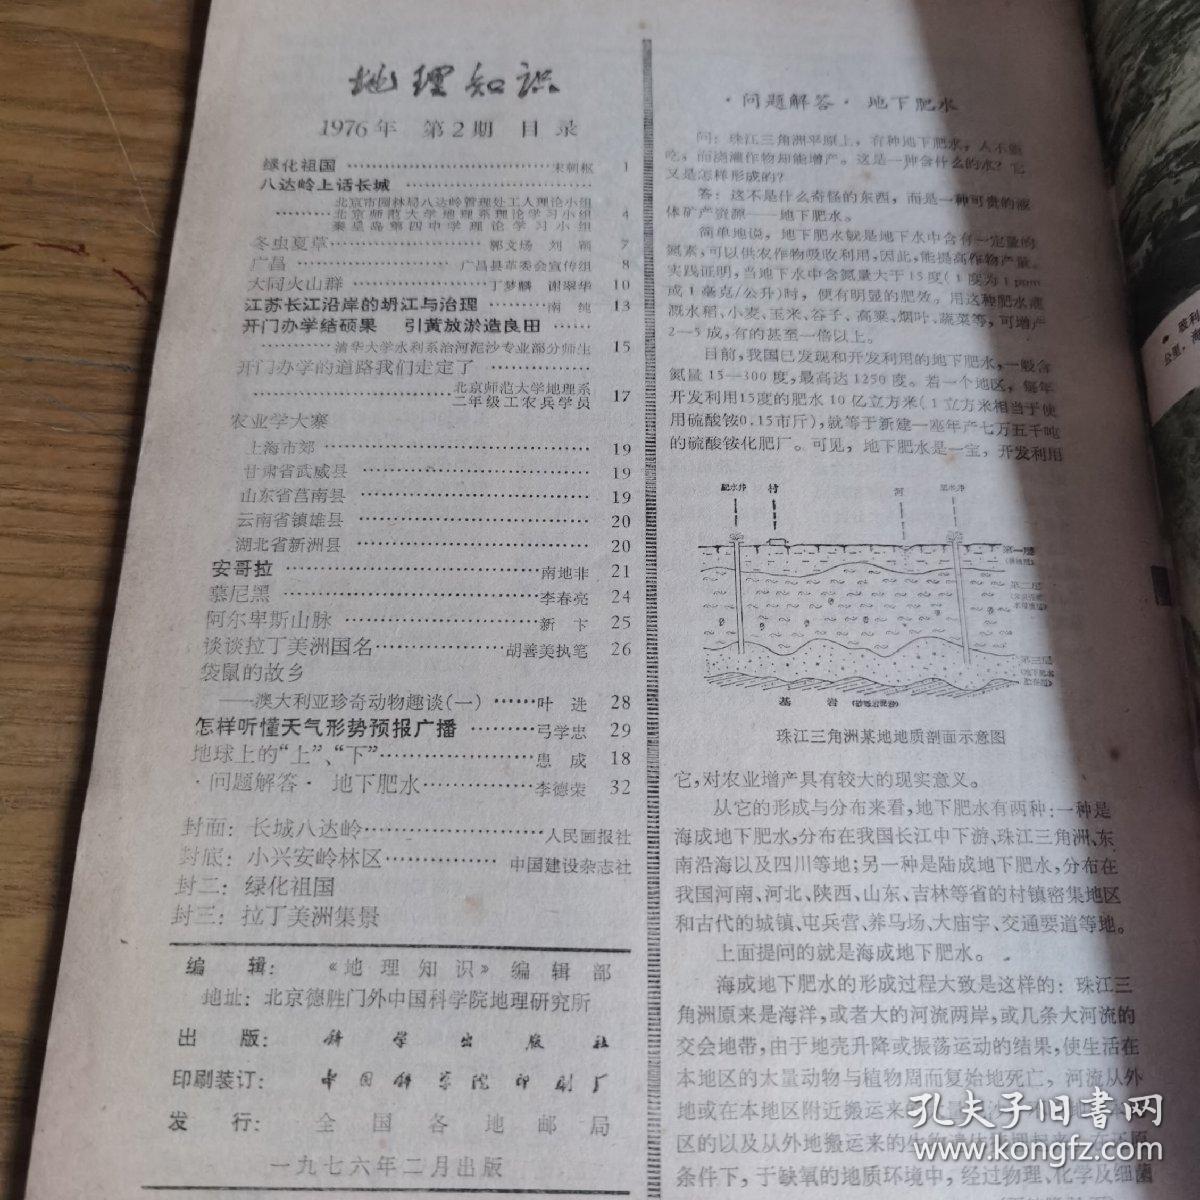 地理知识
1976年 第2期 目录
绿化祖国……宋朝枢 1
八达岭上话长城……
北京市园林局八达岭管理处工人理论小组
……北京师范大学地理系理论学习小组 4
秦皇岛第四中学理论学习小组
冬虫夏草……郭文场 刘颖 7
广昌……广昌县革委会宣传组 8
大同火山群……丁梦麟 谢翠华 10
江苏长江沿岸的坍江与治理……南纯 13
开门办学结硕果 引黄放淤造良田……
……清华大学水利系治河泥沙专业部分师生 15
开门办学的道路我们走定了……
……北京师范大学地理系
二年级工农兵学员 17
农业学大寨
上海市郊……19
甘肃省武威县……19
山东省莒南县……19
云南省镇雄县……20
湖北省新洲县……20
安哥拉……南地非 21
慕尼黑……李春亮 24
阿尔卑斯山脉……新卞 25
谈谈拉丁美洲国名……胡善美执笔 26
袋鼠的故乡
——澳大利亚珍奇动物趣谈(一)……叶进 28
怎样听懂天气形势预报广播……弓学忠 29
地球上的“上”、“下”……惠成 18
·问题解答· 地下肥水……李德荣 32
封面：长城八达岭……人民画报社
封底：小兴安岭林区……中国建设杂志社
封二：绿化祖国
封三：拉丁美洲集景
编辑：《地理知识》编辑部
地址：北京德胜门外中国科学院地理研究所
出版：科学出版社
印刷装订：中国科学院印刷厂
发行：全国各地邮局
一九七六年二月出版
·问题解答· 地下肥水
问：珠江三角洲平原上，有种地下肥水，人不能
吃，而浇灌作物却能增产。这是一种含什么的水？它
又是怎样形成的？
答：这不是什么奇怪的东西，而是一种可贵的液
体矿产资源——地下肥水。
简单地说，地下肥水就是地下水中含有一定量的
氮素，可以供农作物吸收利用，因此，能提高作物产量。
实践证明，当地下水中含氮量大于15度(1度为1ppm
或1毫克/公升)时，便有明显的肥效。用这种肥水灌
溉水稻、小麦、玉米、谷子、高粱、烟叶、蔬菜等，可增产
2—5成，有的甚至一倍以上。
目前，我国已发现和开发利用的地下肥水，一般含
氮量15—300度，最高达1250度。若一个地区，每年
开发利用15度的肥水10亿立方米(1立方米相当于使
用硫酸铵0.15市斤)，就等于新建一座年产七万五千吨
的硫酸铵化肥厂。可见，地下肥水是一宝，开发利用
肥水井 村 河 肥水井
第一层
第二层
第三层
基岩
珠江三角洲某地地质剖面示意图
它，对农业增产具有较大的现实意义。
从它的形成与分布来看，地下肥水有两种：一种是
海成地下肥水，分布在我国长江中下游、珠江三角洲、东
南沿海以及四川等地；另一种是陆成地下肥水，分布在
我国河南、河北、陕西、山东、吉林等省的村镇密集地区
和古代的城镇、屯兵营、养马场、大庙宇、交通要道等地。
上面提问的就是海成地下肥水。
海成地下肥水的形成过程大致是这样的：珠江三
角洲原来是海洋，或者大的河流两岸，或几条大河流的
交会地带，由于地壳升降或振荡运动的结果，使生活在
本地区的大量动物与植物周而复始地死亡，河流从外
地或在本地区附近搬运来的
区的以及从外地搬运来的生物遗体
条件下，于缺氧的地质环境中，经过物理、化学及细菌
孔夫子旧书网
www.kongfz.com